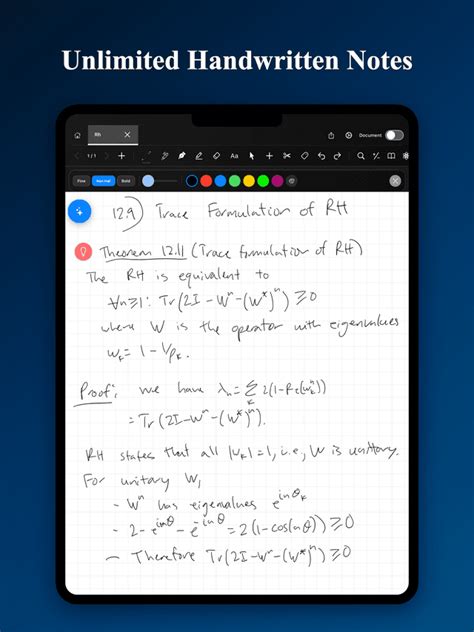 Unlimited Handwritten Notes
Rh
Document
1/1
Aa
Fine Normal Bold
12.9) Trace Formulation of RH
Theorem 12.11 (Trace formulation of RH)
The RH is equivalent to
∀n≥1: Tr(2I - Wⁿ - (W*)ⁿ) ≥ 0
where W is the operator with eigenvalues
wₖ = 1 - 1/ρₖ.
Proof: We have λₙ = Σₖ 2(1 - Re(wₖⁿ))
= Tr(2I - Wⁿ - (W*)ⁿ).
RH states that all |wₖ| = 1, i.e., W is unitary.
For unitary W,
- Wⁿ has eigenvalues e^{inθₖ}
- 2 - e^{inθ} - e^{-inθ} = 2(1 - cos(nθ)) ≥ 0
- Therefore Tr(2I - Wⁿ - (W*)ⁿ) ≥ 0